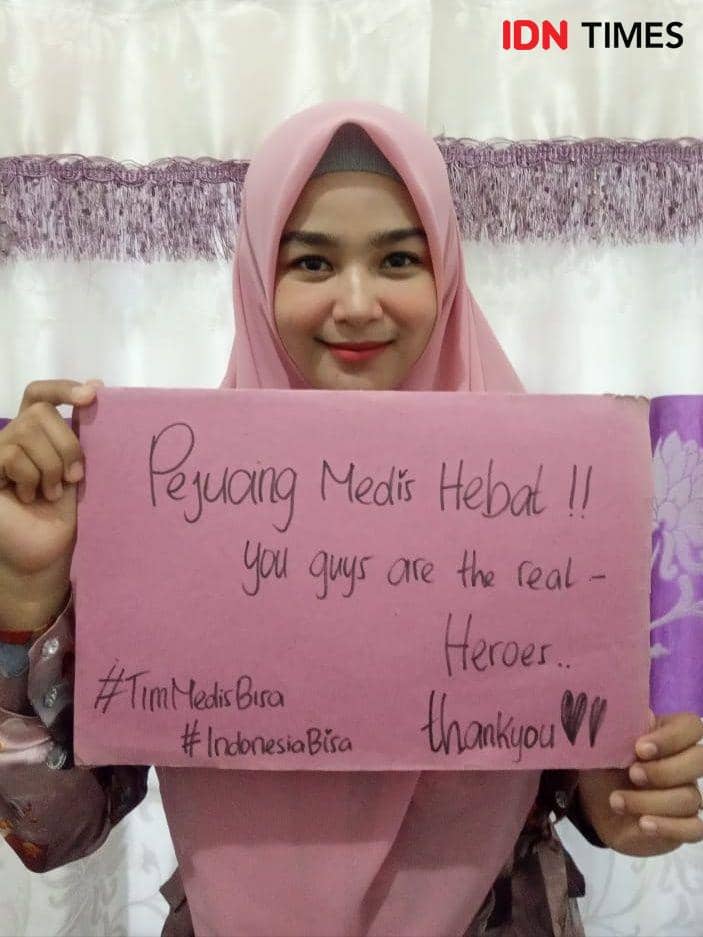 IDN TIMES
Pejuang Medis Hebat !!
you guys are the real -
Heroes..
thankyou
#TimMedisBisa
#IndonesiaBisa